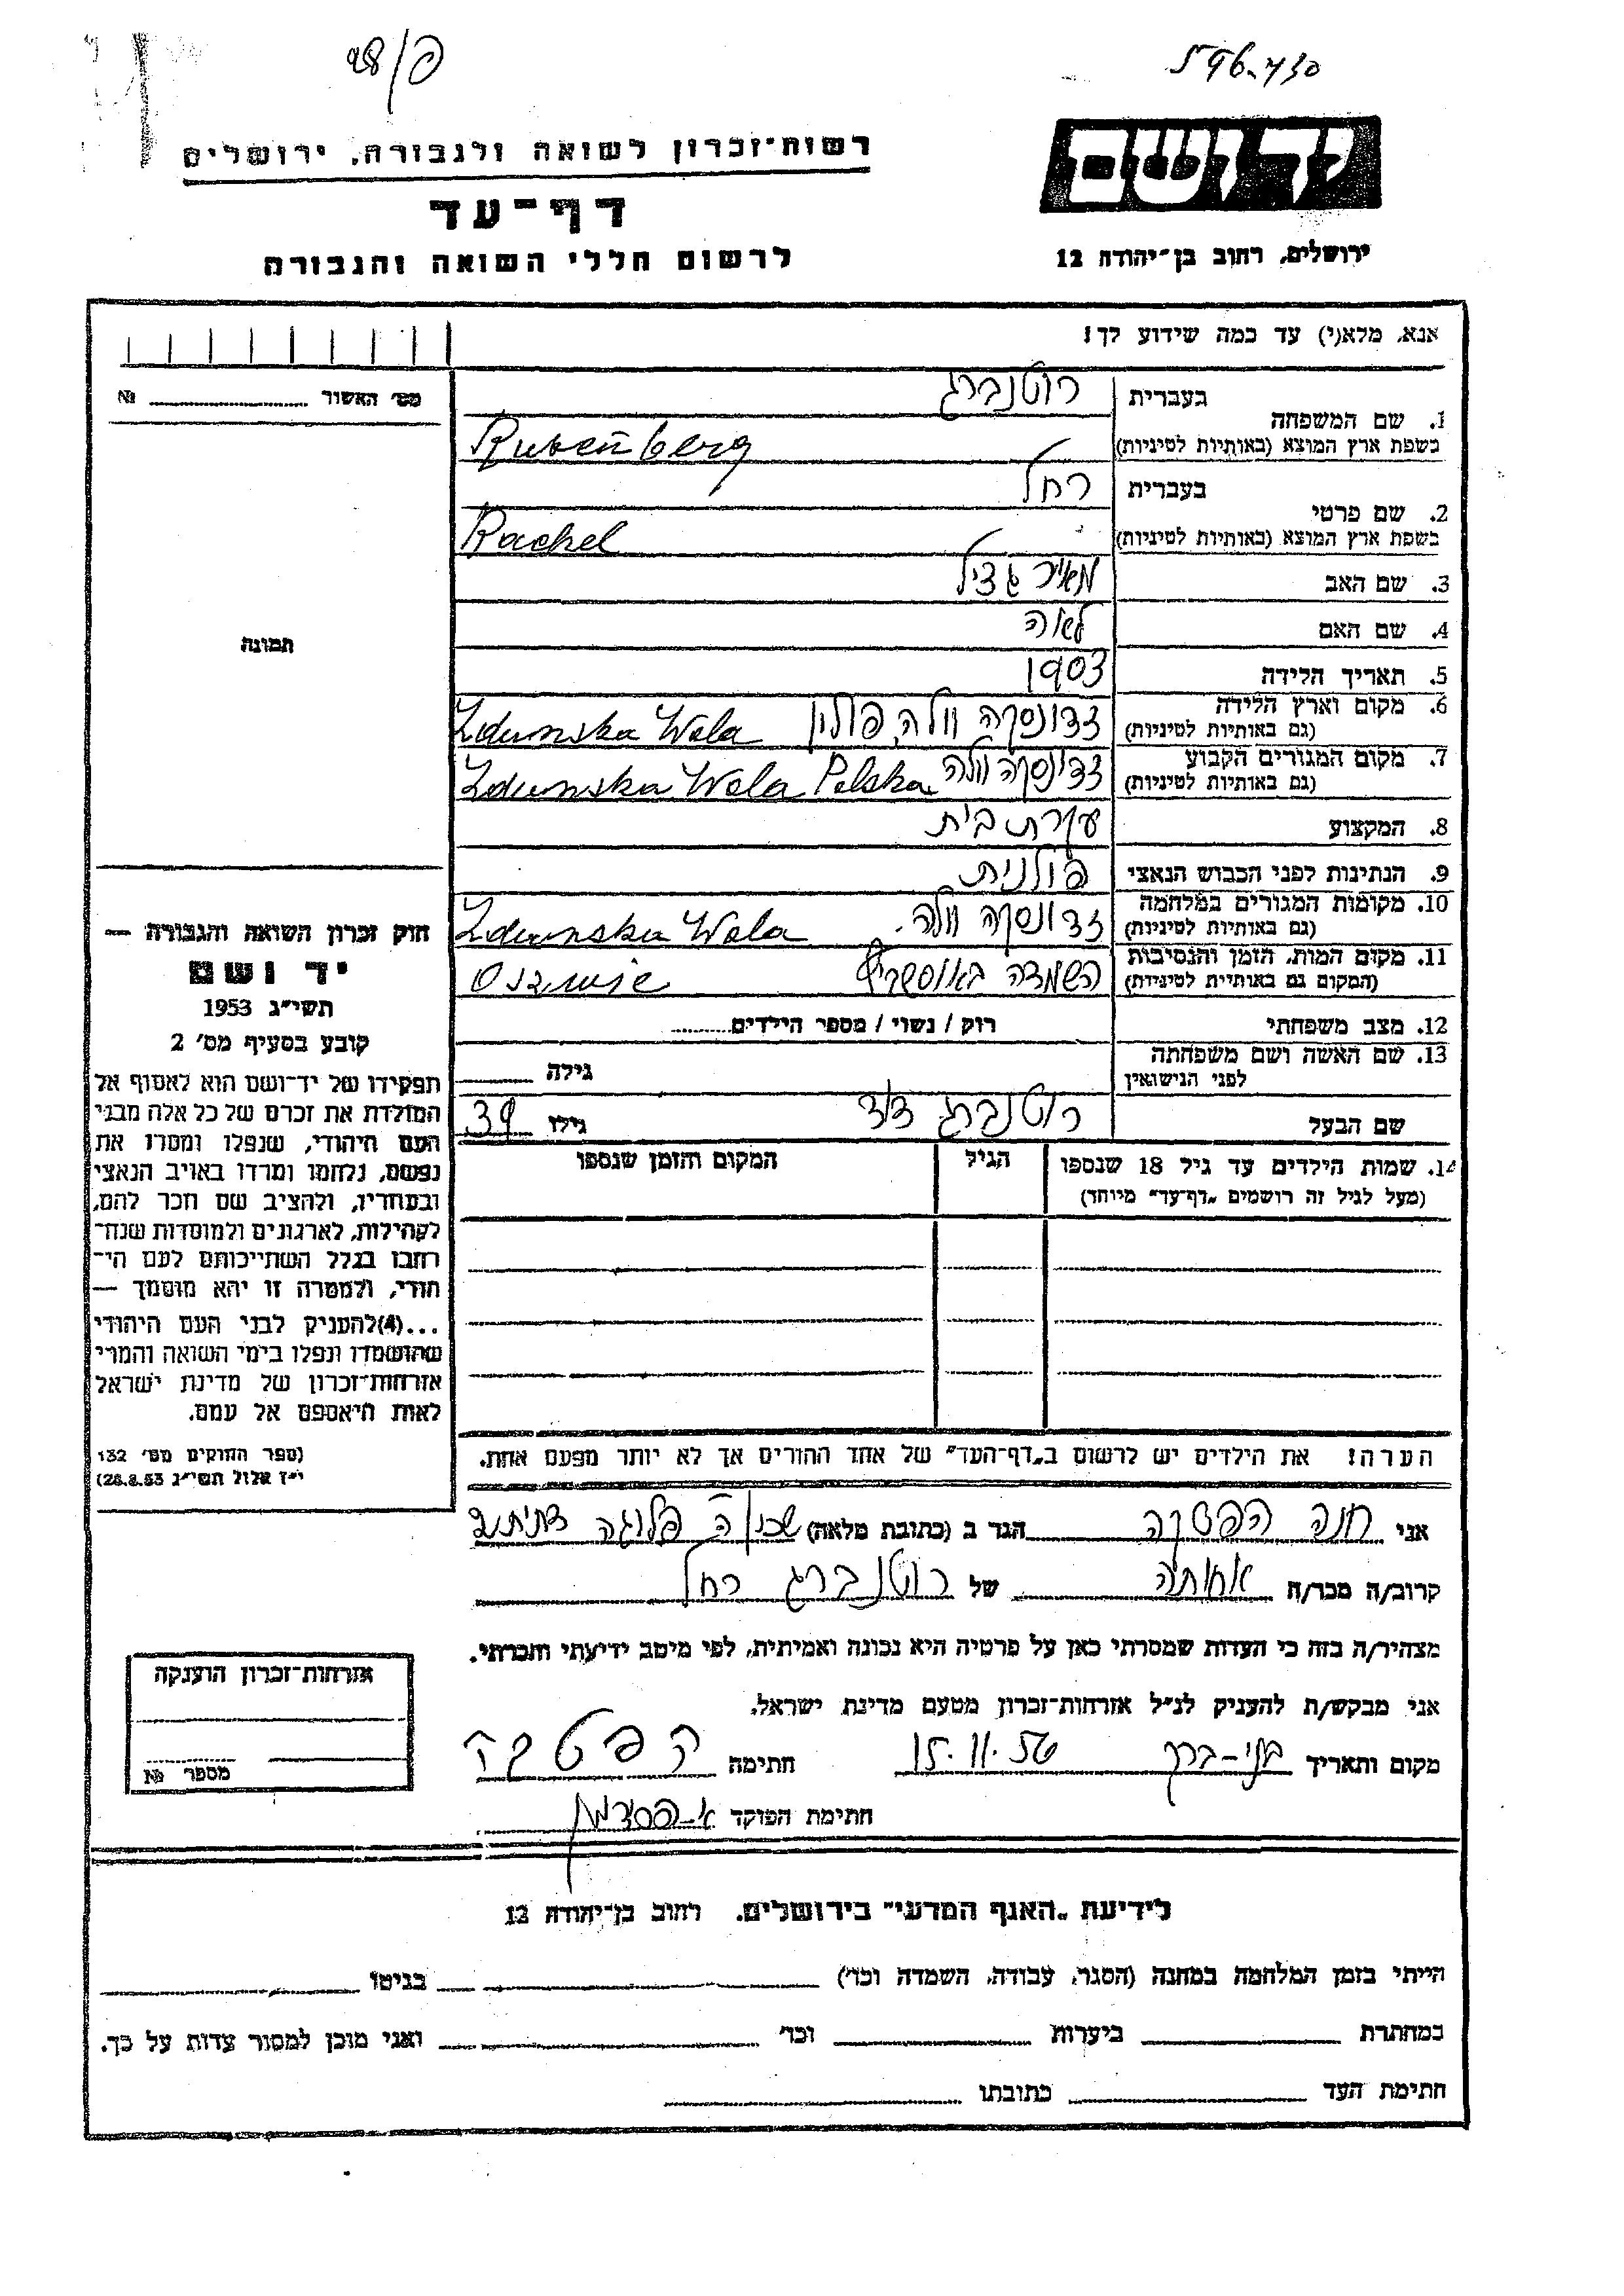 פ/98
רשות־זכרון לשואה ולגבורה, ירושלים
דף־עד
לרשום חללי השואה והגבורה
יד ושם
ירושלים, רחוב בן־יהודה 12
אנא, מלא(י) עד כמה שידוע לך!
מס׳ האשור № 
1. שם המשפחה
בעברית רוטנברג
בשפת ארץ המוצא (באותיות לטיניות) Rutenberg
2. שם פרטי
בעברית רחל
בשפת ארץ המוצא (באותיות לטיניות) Rachel
3. שם האב מאיר געציל
4. שם האם לאה
5. תאריך הלידה 1903
6. מקום וארץ הלידה (גם באותיות לטיניות) זדונסקה וולה, פולין Zdunska Wola
7. מקום המגורים הקבוע (גם באותיות לטיניות) זדונסקה וולה Zdunska Wola Polska
8. המקצוע עקרת בית
9. הנתינות לפני הכבוש הנאצי פולנית
10. מקומות המגורים במלחמה (גם באותיות לטיניות) זדונסקה וולה. Zdunska Wola
11. מקום המות, הזמן והנסיבות (המקום גם באותיות לטיניות) השמדה באושביץ
12. מצב משפחתי רווק / נשוי / מספר הילדים
13. שם האשה ושם משפחתה לפני הנישואין גילה
שם הבעל רוטנברג דוד גילו 39
14. שמות הילדים עד גיל 18 שנספו הגיל המקום והזמן שנספו
(מעל לגיל זה רושמים „דף־עד״ מיוחד)
הערה! את הילדים יש לרשום ב„דף־העד״ של אחד ההורים אך לא יותר מפעם אחת.
תמונה
חוק זכרון השואה והגבורה —
יד ושם
תשי״ג 1953
קובע בסעיף מס׳ 2
תפקידו של יד־ושם הוא לאסוף אל
המולדת את זכרם של כל אלה מבני
העם היהודי, שנפלו ומסרו את
נפשם, נלחמו ומרדו באויב הנאצי
ובעוזריו, ולהציב שם וזכר להם,
לקהילות, לארגונים ולמוסדות שנח־
רבו בגלל השתייכותם לעם הי־
הודי, ולמטרה זו יהא מוסמך —
...(4)להעניק לבני העם היהודי
שהושמדו ונפלו בימי השואה והמרי
אזרחות־זכרון של מדינת ישראל
לאות היאספם אל עמם.
(ספר החוקים מס׳ 132
י״ז אלול תשי״ג 28.8.53)
אני חנה הפטקה הגר ב (כתובת מלאה) שכון ה פלוגה
קרוב/ה מכר/ה אחותה של רוטנברג רחל
מצהיר/ה בזה כי העדות שמסרתי כאן על פרטיה היא נכונה ואמיתית, לפי מיטב ידיעתי והכרתי.
אני מבקש/ת להעניק לנ״ל אזרחות־זכרון מטעם מדינת ישראל.
מקום ותאריך בני־ברק 15.11.56 חתימה
חתימת הפוקד
אזרחות־זכרון הוענקה
מספר №
לידיעת „האגף המדעי״ בירושלים. רחוב בן־יהודה 12
הייתי בזמן המלחמה במחנה (הסגר, עבודה, השמדה וכד׳) בגיטו
במחתרת ביערות וכד׳ ואני מוכן למסור עדות על כך.
חתימת העד כתובתו